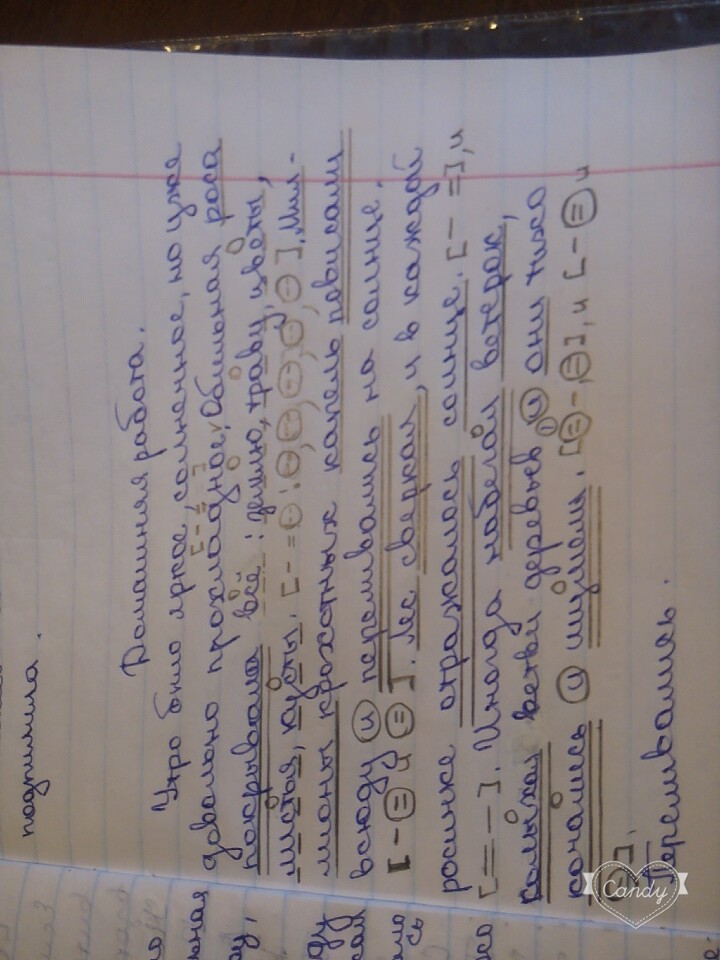 подтянула.
Домашняя работа.
Утро было яркое, солнечное, но уже
[-=]
довольно прохладное. Обильная роса
покрывала всё: землю, траву, цветы,
листья, кусты. [-=O:O,O,O,O,O]. Мил-
лионы крохотных капель повисали
всюду и переливались на солнце.
[-=и=]. Лес сверкал, и в каждой
росинке отражалось солнце. [-=], и
[=-]. Иногда набегал ветерок,
колыхал ветви деревьев, и они тихо
качались и шумели. [=-,=], и [-=и
=].
Переливались.
Candy